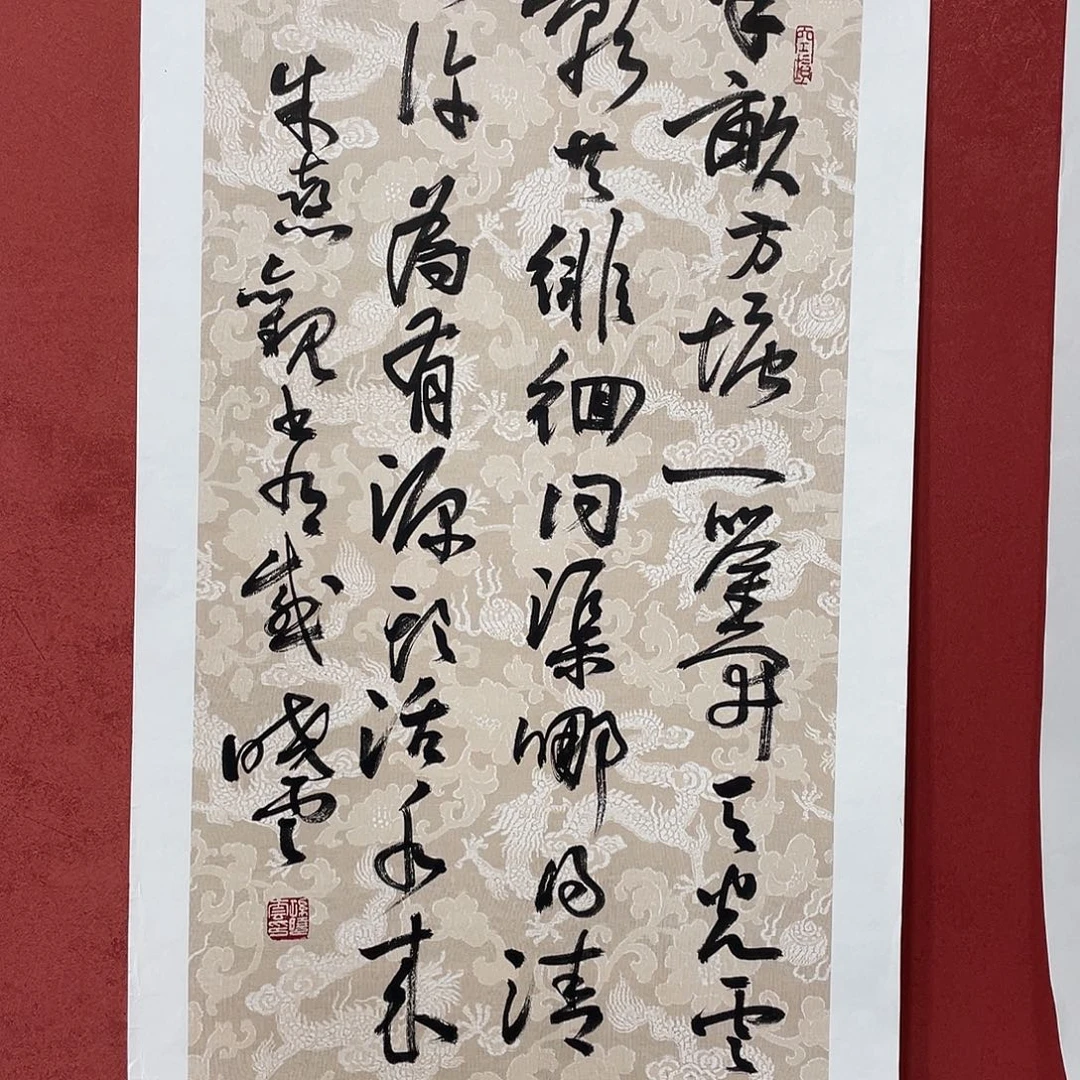 半畝方塘一鑒開天光雲
影共徘徊問渠哪得清
許為有源頭活水來
朱熹觀書有感 曉雲